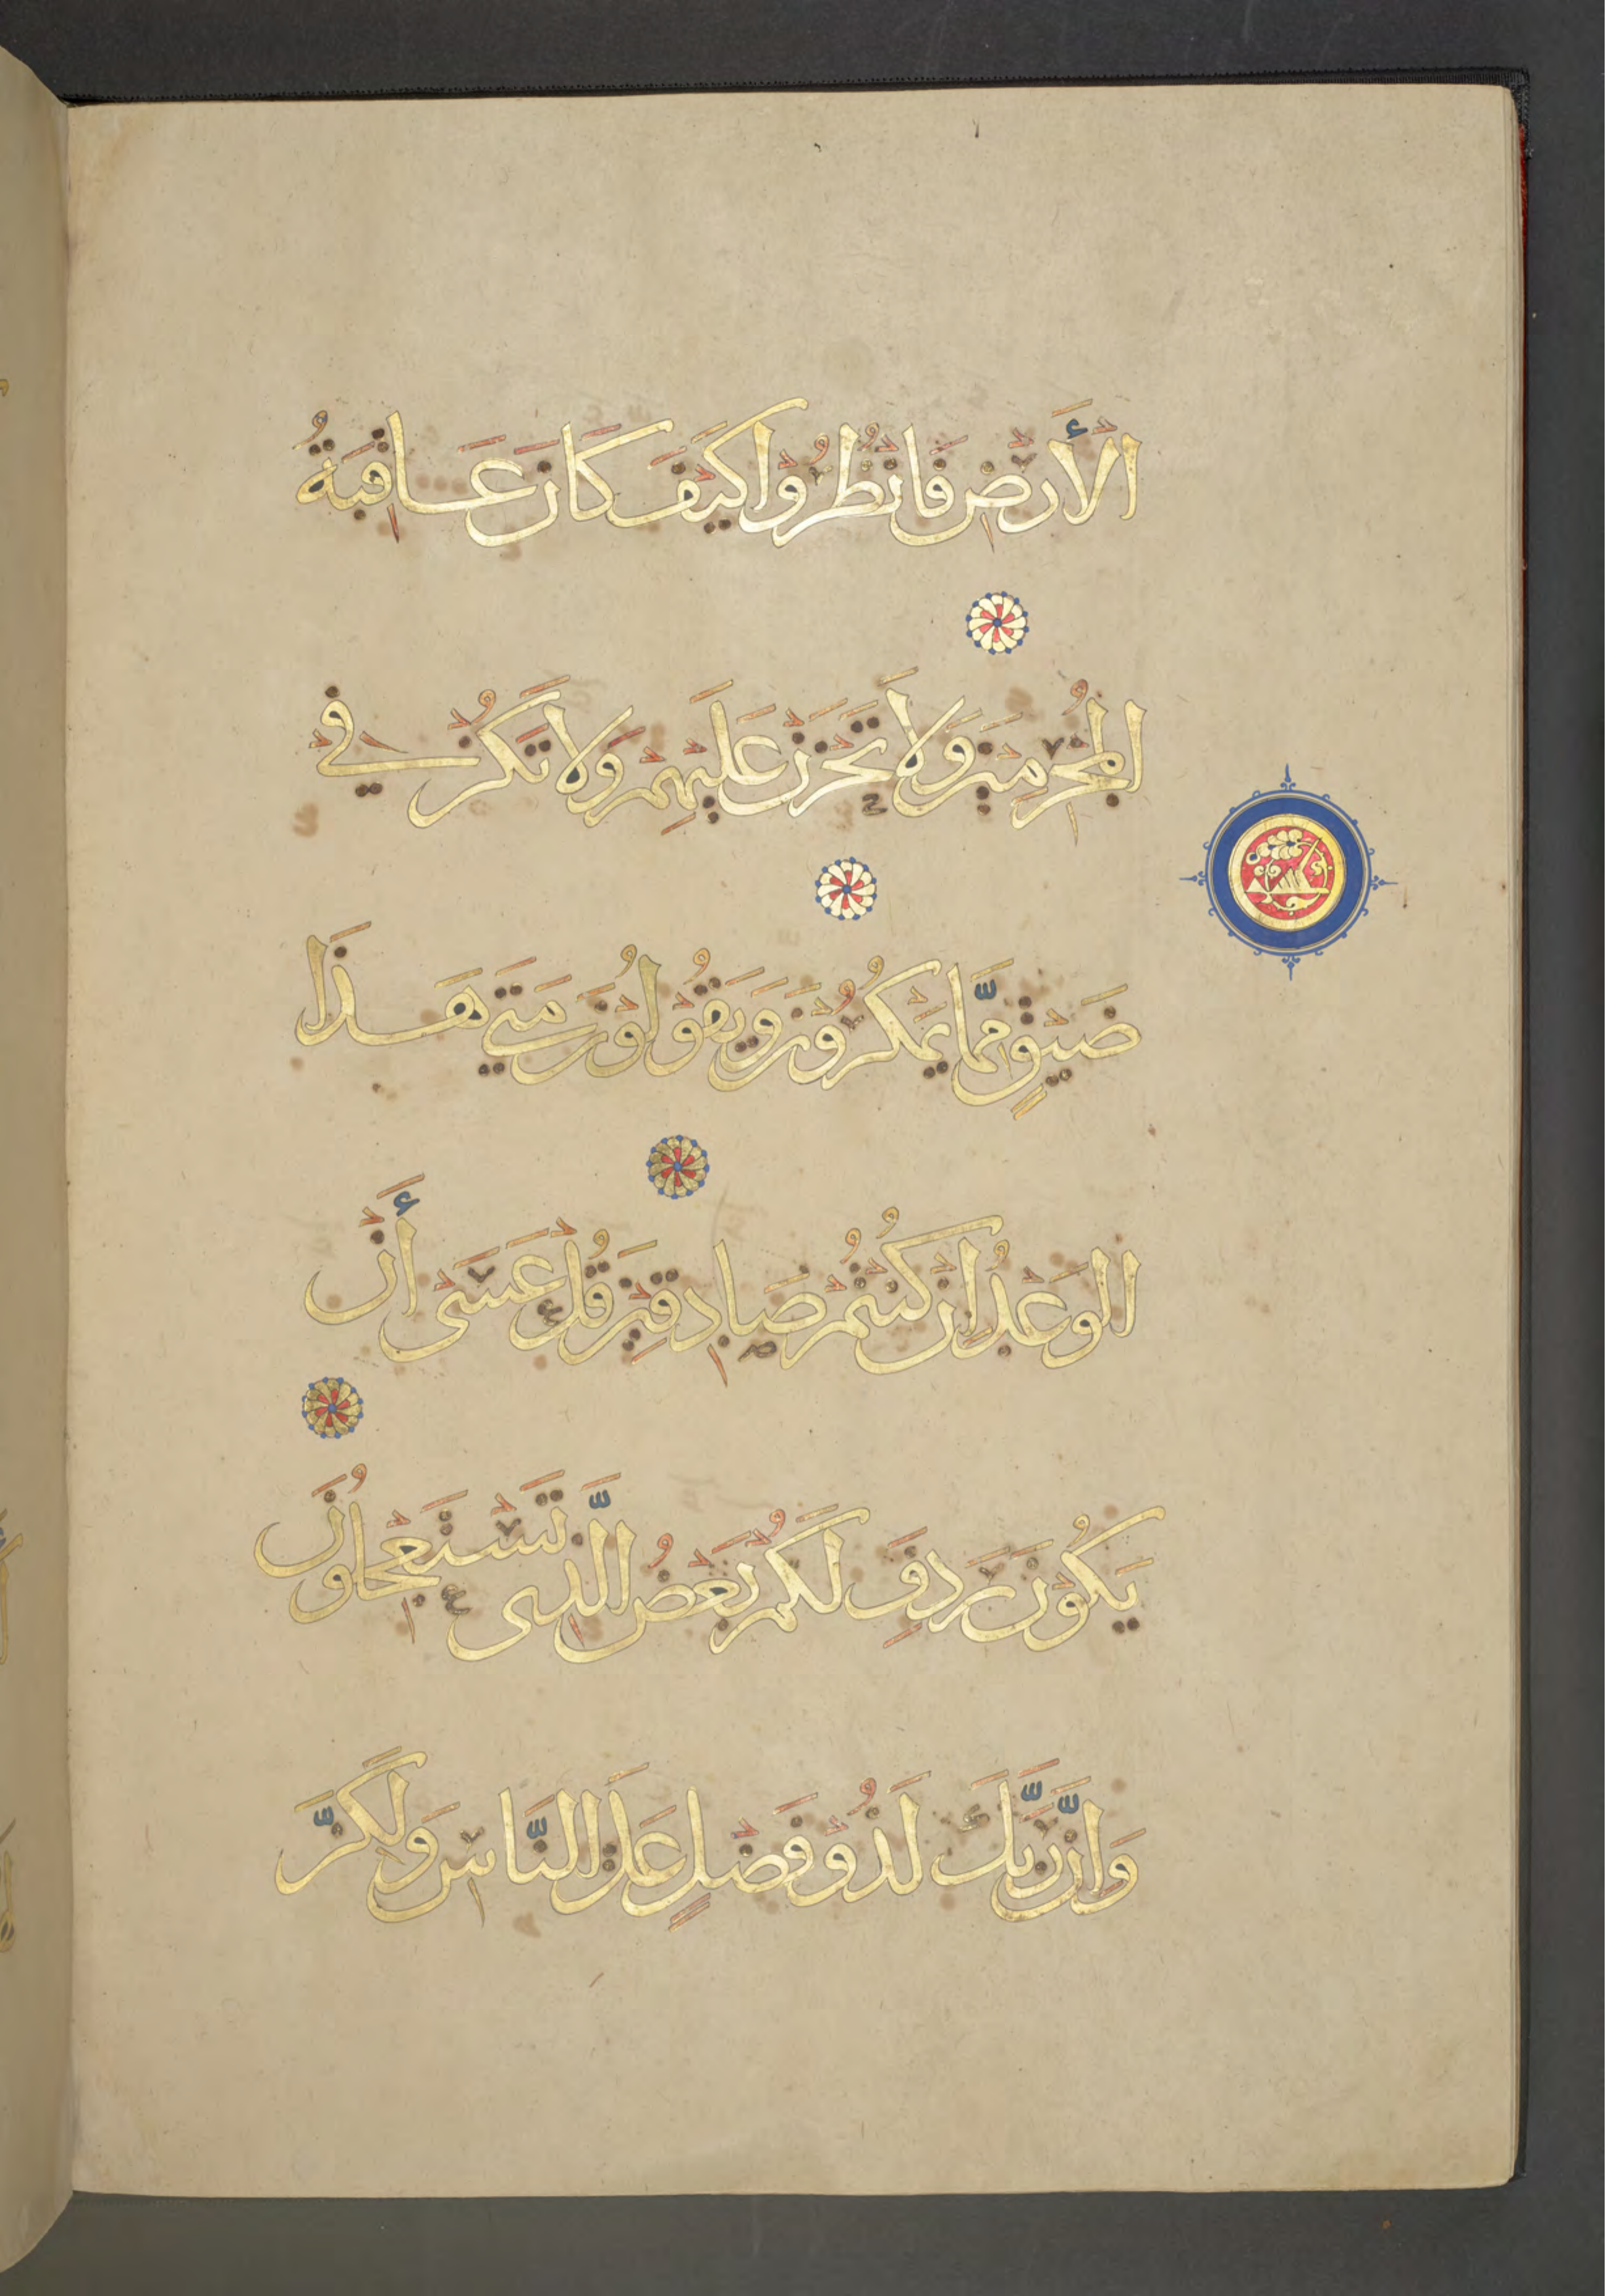 الْأَرْضِ فَانْظُرُوْا كَيْفَ كَانَ عَاقِبَةُ
الْمُجْرِمِيْنَ وَلَا تَحْزَنْ عَلَيْهِمْ وَلَا تَكُنْ فِيْ
ضَيْقٍ مِمَّا يَمْكُرُوْنَ وَيَقُوْلُوْنَ مَتَى هَذَا
الْوَعْدُ اِنْ كُنْتُمْ صَادِقِيْنَ قُلْ عَسَىْ أَنْ
يَكُوْنَ رَدِفَ لَكُمْ بَعْضُ الَّذِى تَسْتَعْجِلُوْنَ
وَاِنَّ رَبَّكَ لَذُوْ فَضْلٍ عَلَى النَّاسِ وَلَكِنَّ